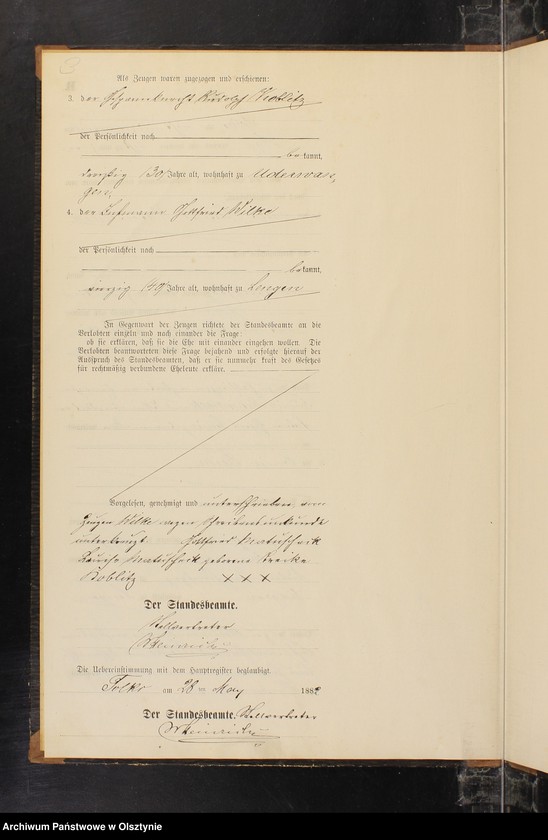 Als Zeugen waren zugezogen und erschienen:
3. der Gespannknecht Rudolf Koblitz
der Persönlichkeit nach
bekannt,
dreißig (30) Jahre alt, wohnhaft zu Uderwan-
gen,
4. der Losmann Gottfried Wilke
der Persönlichkeit nach
bekannt,
vierzig (40) Jahre alt, wohnhaft zu Lengen
In Gegenwart der Zeugen richtete der Standesbeamte an die
Verlobten einzeln und nach einander die Frage:
ob sie erklären, daß sie die Ehe mit einander eingehen wollen. Die
Verlobten beantworteten diese Frage bejahend und erfolgte hierauf der
Ausspruch des Standesbeamten, daß er sie nunmehr kraft des Gesetzes
für rechtmäßig verbundene Eheleute erkläre.
Vorgelesen, genehmigt und unterschrieben vom
Zeugen Wilke wegen Schreibensunkunde
unterkreuzt Gottfried Matuscheik
Matuscheik geborene
Koblitz XXX
Der Standesbeamte.
Stellvertreter
Die Uebereinstimmung mit dem Hauptregister beglaubigt.
am 28ten May 188
Der Standesbeamte. Stellvertreter
Archiwum Państwowe w Olsztynie